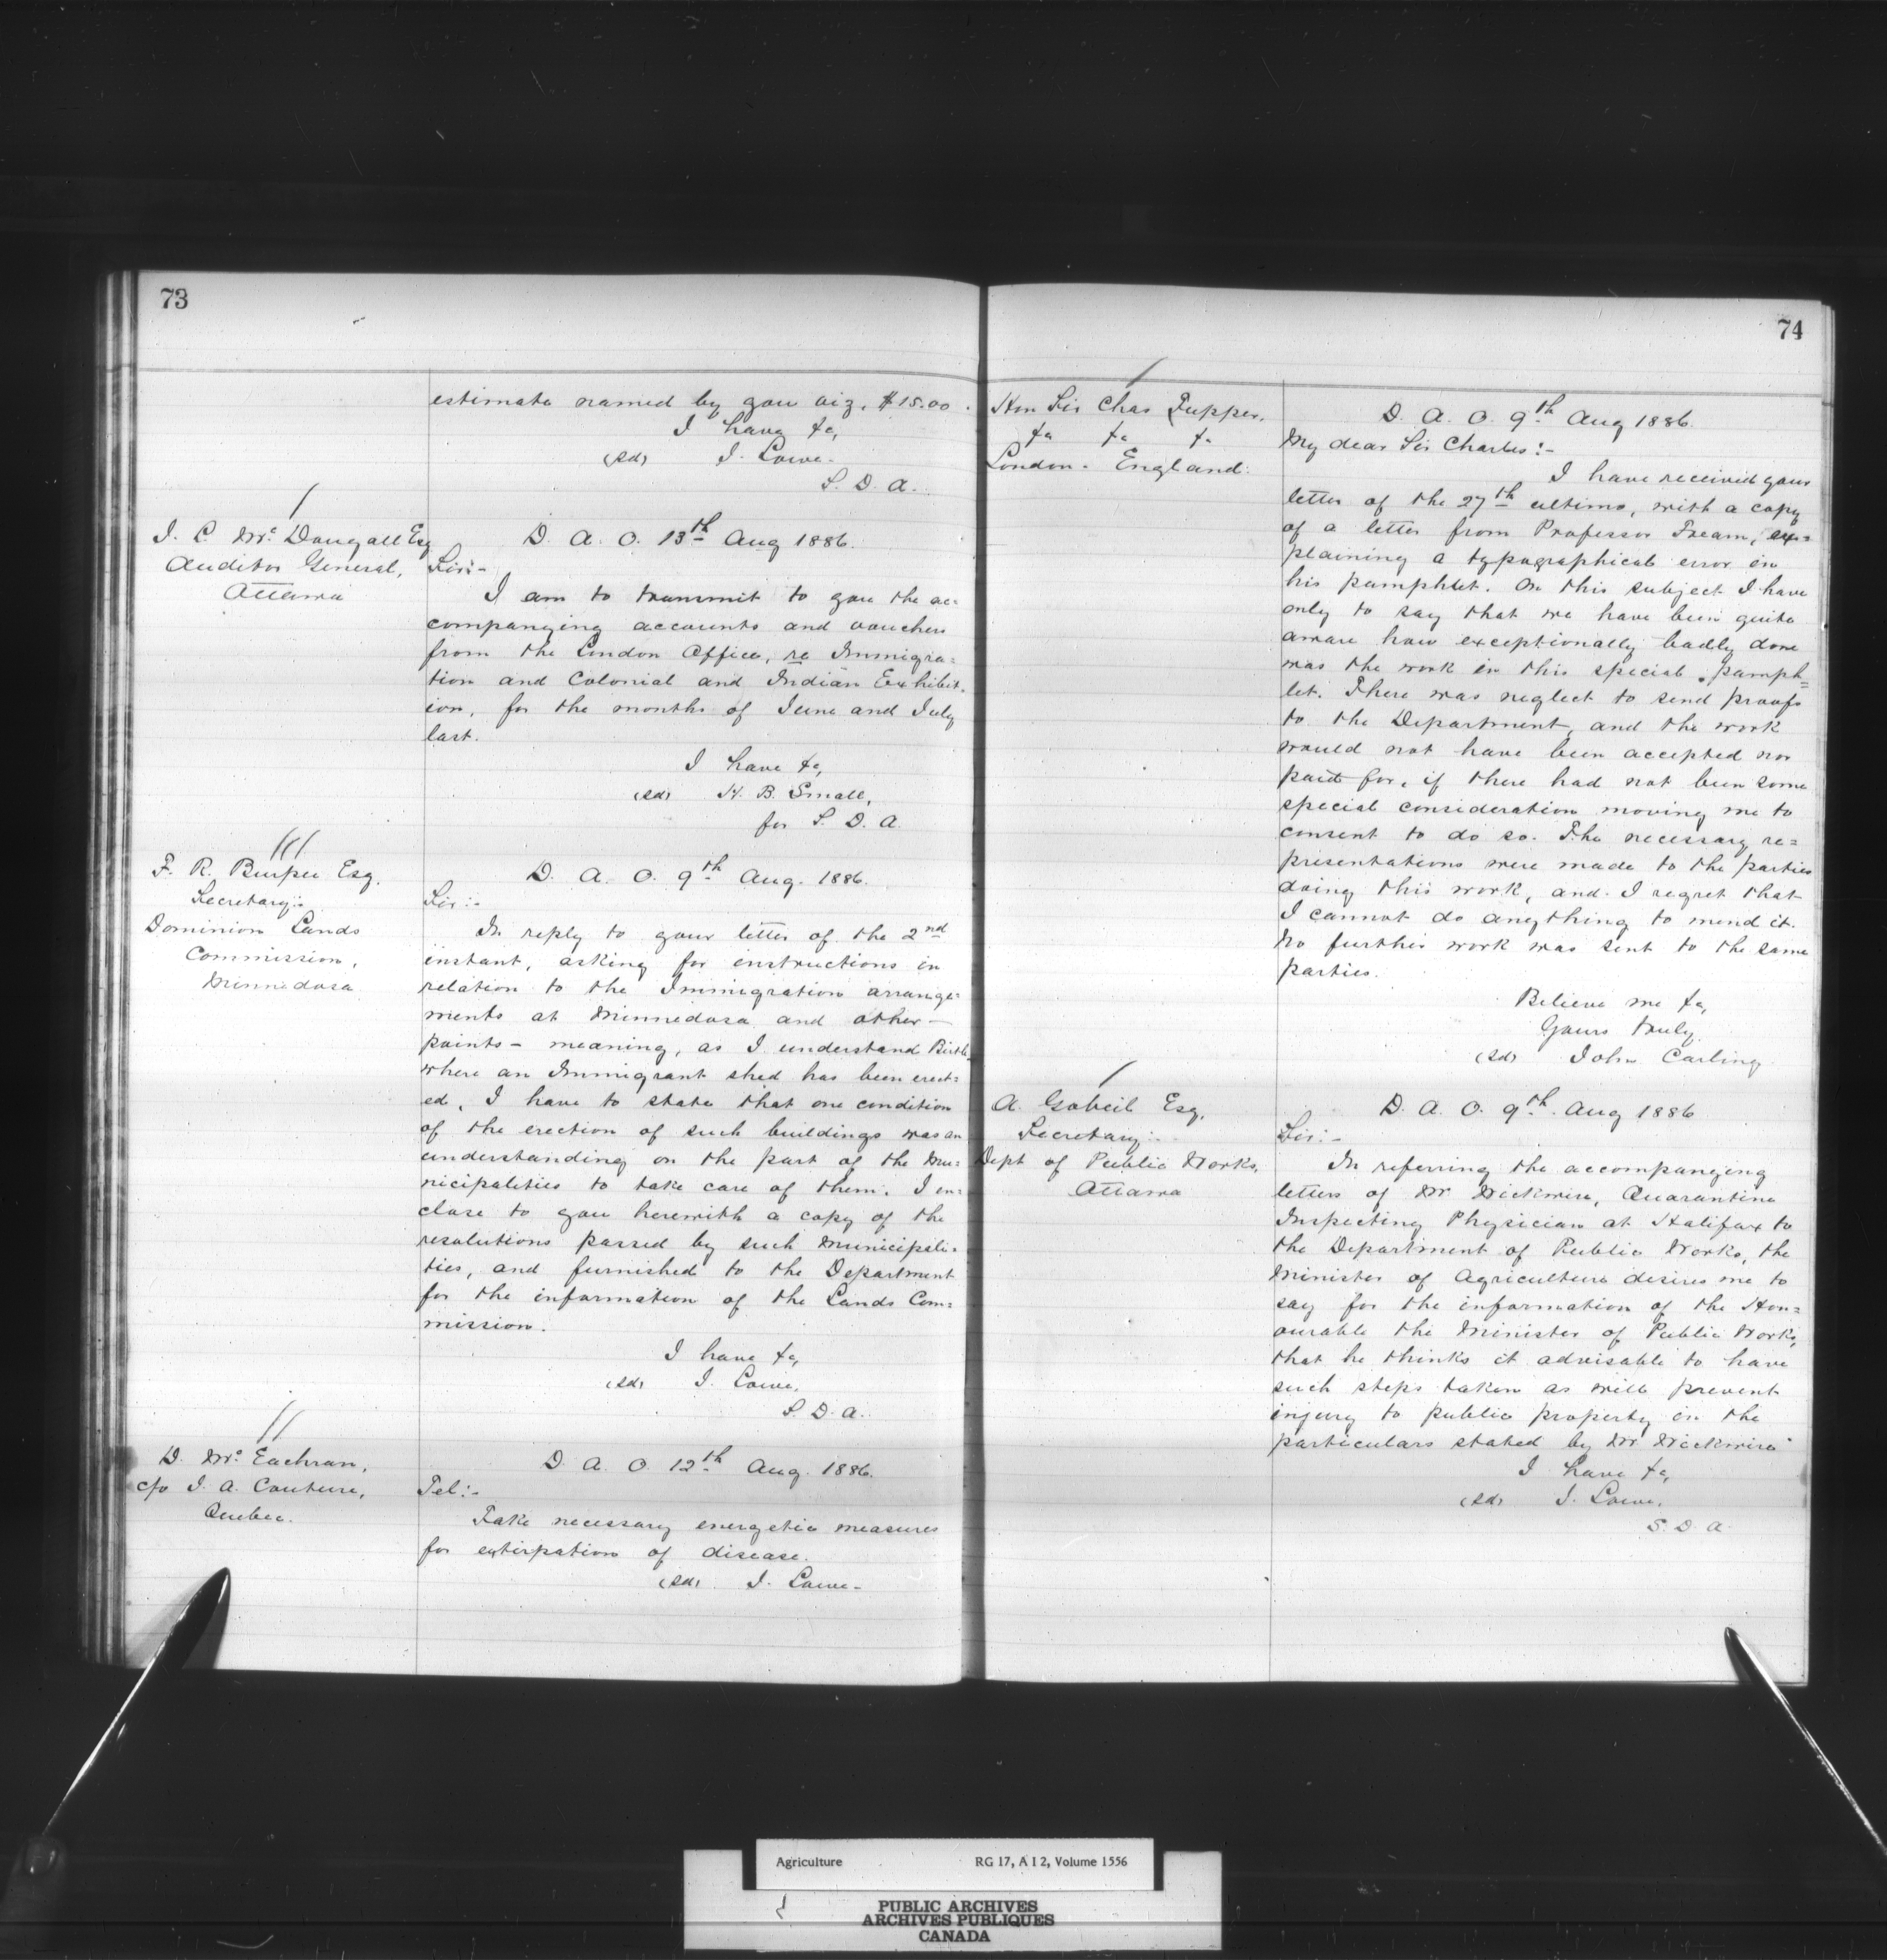 73
estimate named by you viz, $15.00.
I have &c,
(Sd) J. Lowe.
S. D. A.
J. C. McDougall Esq
Auditor General,
Ottawa
D. A. O. 13th Aug 1886.
Sir:-
I am to transmit to you the ac=
companying accounts and vouchers
from the London Office, re Immigra=
tion and Colonial and Indian Exhibit=
ion, for the months of June and July
last.
I have &c,
(Sd) H. B. Small,
for S. D. A.
F. R. Burpee Esq.
Secretary:-
Dominion Lands
Commission,
Minnedosa
D. A. O. 9th Aug. 1886.
Sir:-
In reply to your letter of the 2nd
instant, asking for instructions in
relation to the Immigration arrange=
ments at Minnedosa and other
points - meaning, as I understand Birtle
where an Immigrant shed has been erect=
ed, I have to state that one condition
of the erection of such buildings was an
understanding on the part of the Mu=
nicipalities to take care of them. I en=
close to you herewith a copy of the
resolutions passed by such Municipali=
ties, and furnished to the Department
for the information of the Lands Com=
mission.
I have &c,
(Sd) J. Lowe,
S. D. A.
D. McEachran,
c/o J. A. Couture,
Quebec.
D. A. O. 12th Aug. 1886.
Tel:-
Take necessary energetic measures
for extirpation of disease.
(Sd) J. Lowe-
74
Hon Sir Chas Tupper.
&c &c &c
London. England.
D. A. O. 9th Aug 1886.
My dear Sir Charles:-
I have received your
letter of the 27th ultimo, with a copy
of a letter from Professor Fream, ex=
plaining a typographical error in
his pamphlet. On this subject I have
only to say that we have been quite
aware how exceptionally badly done
was the work in this special pamph=
let. There was neglect to send proofs
to the Department, and the work
would not have been accepted nor
paid for, if there had not been some
special consideration moving me to
consent to do so. The necessary re=
presentations were made to the parties
doing this work, and I regret that
I cannot do anything to mend it.
No further work was sent to the same
parties.
Believe me &c,
Yours truly
(Sd) John Carling
A. Gobeil Esq.
Secretary:-
Dept of Public Works,
Ottawa
D. A. O. 9th Aug 1886
Sir:-
In referring the accompanying
letters of Dr. Wickwire, Quarantine
Inspecting Physician at Halifax to
the Department of Public Works, the
Minister of Agriculture desires me to
say for the information of the Hon=
ourable the Minister of Public Works,
that he thinks it advisable to have
such steps taken as will prevent
injury to public property in the
particulars stated by Dr. Wickwire
I have &c,
(Sd) J. Lowe,
S. D. A.
Agriculture RG 17, A I 2, Volume 1556
PUBLIC ARCHIVES
ARCHIVES PUBLIQUES
CANADA